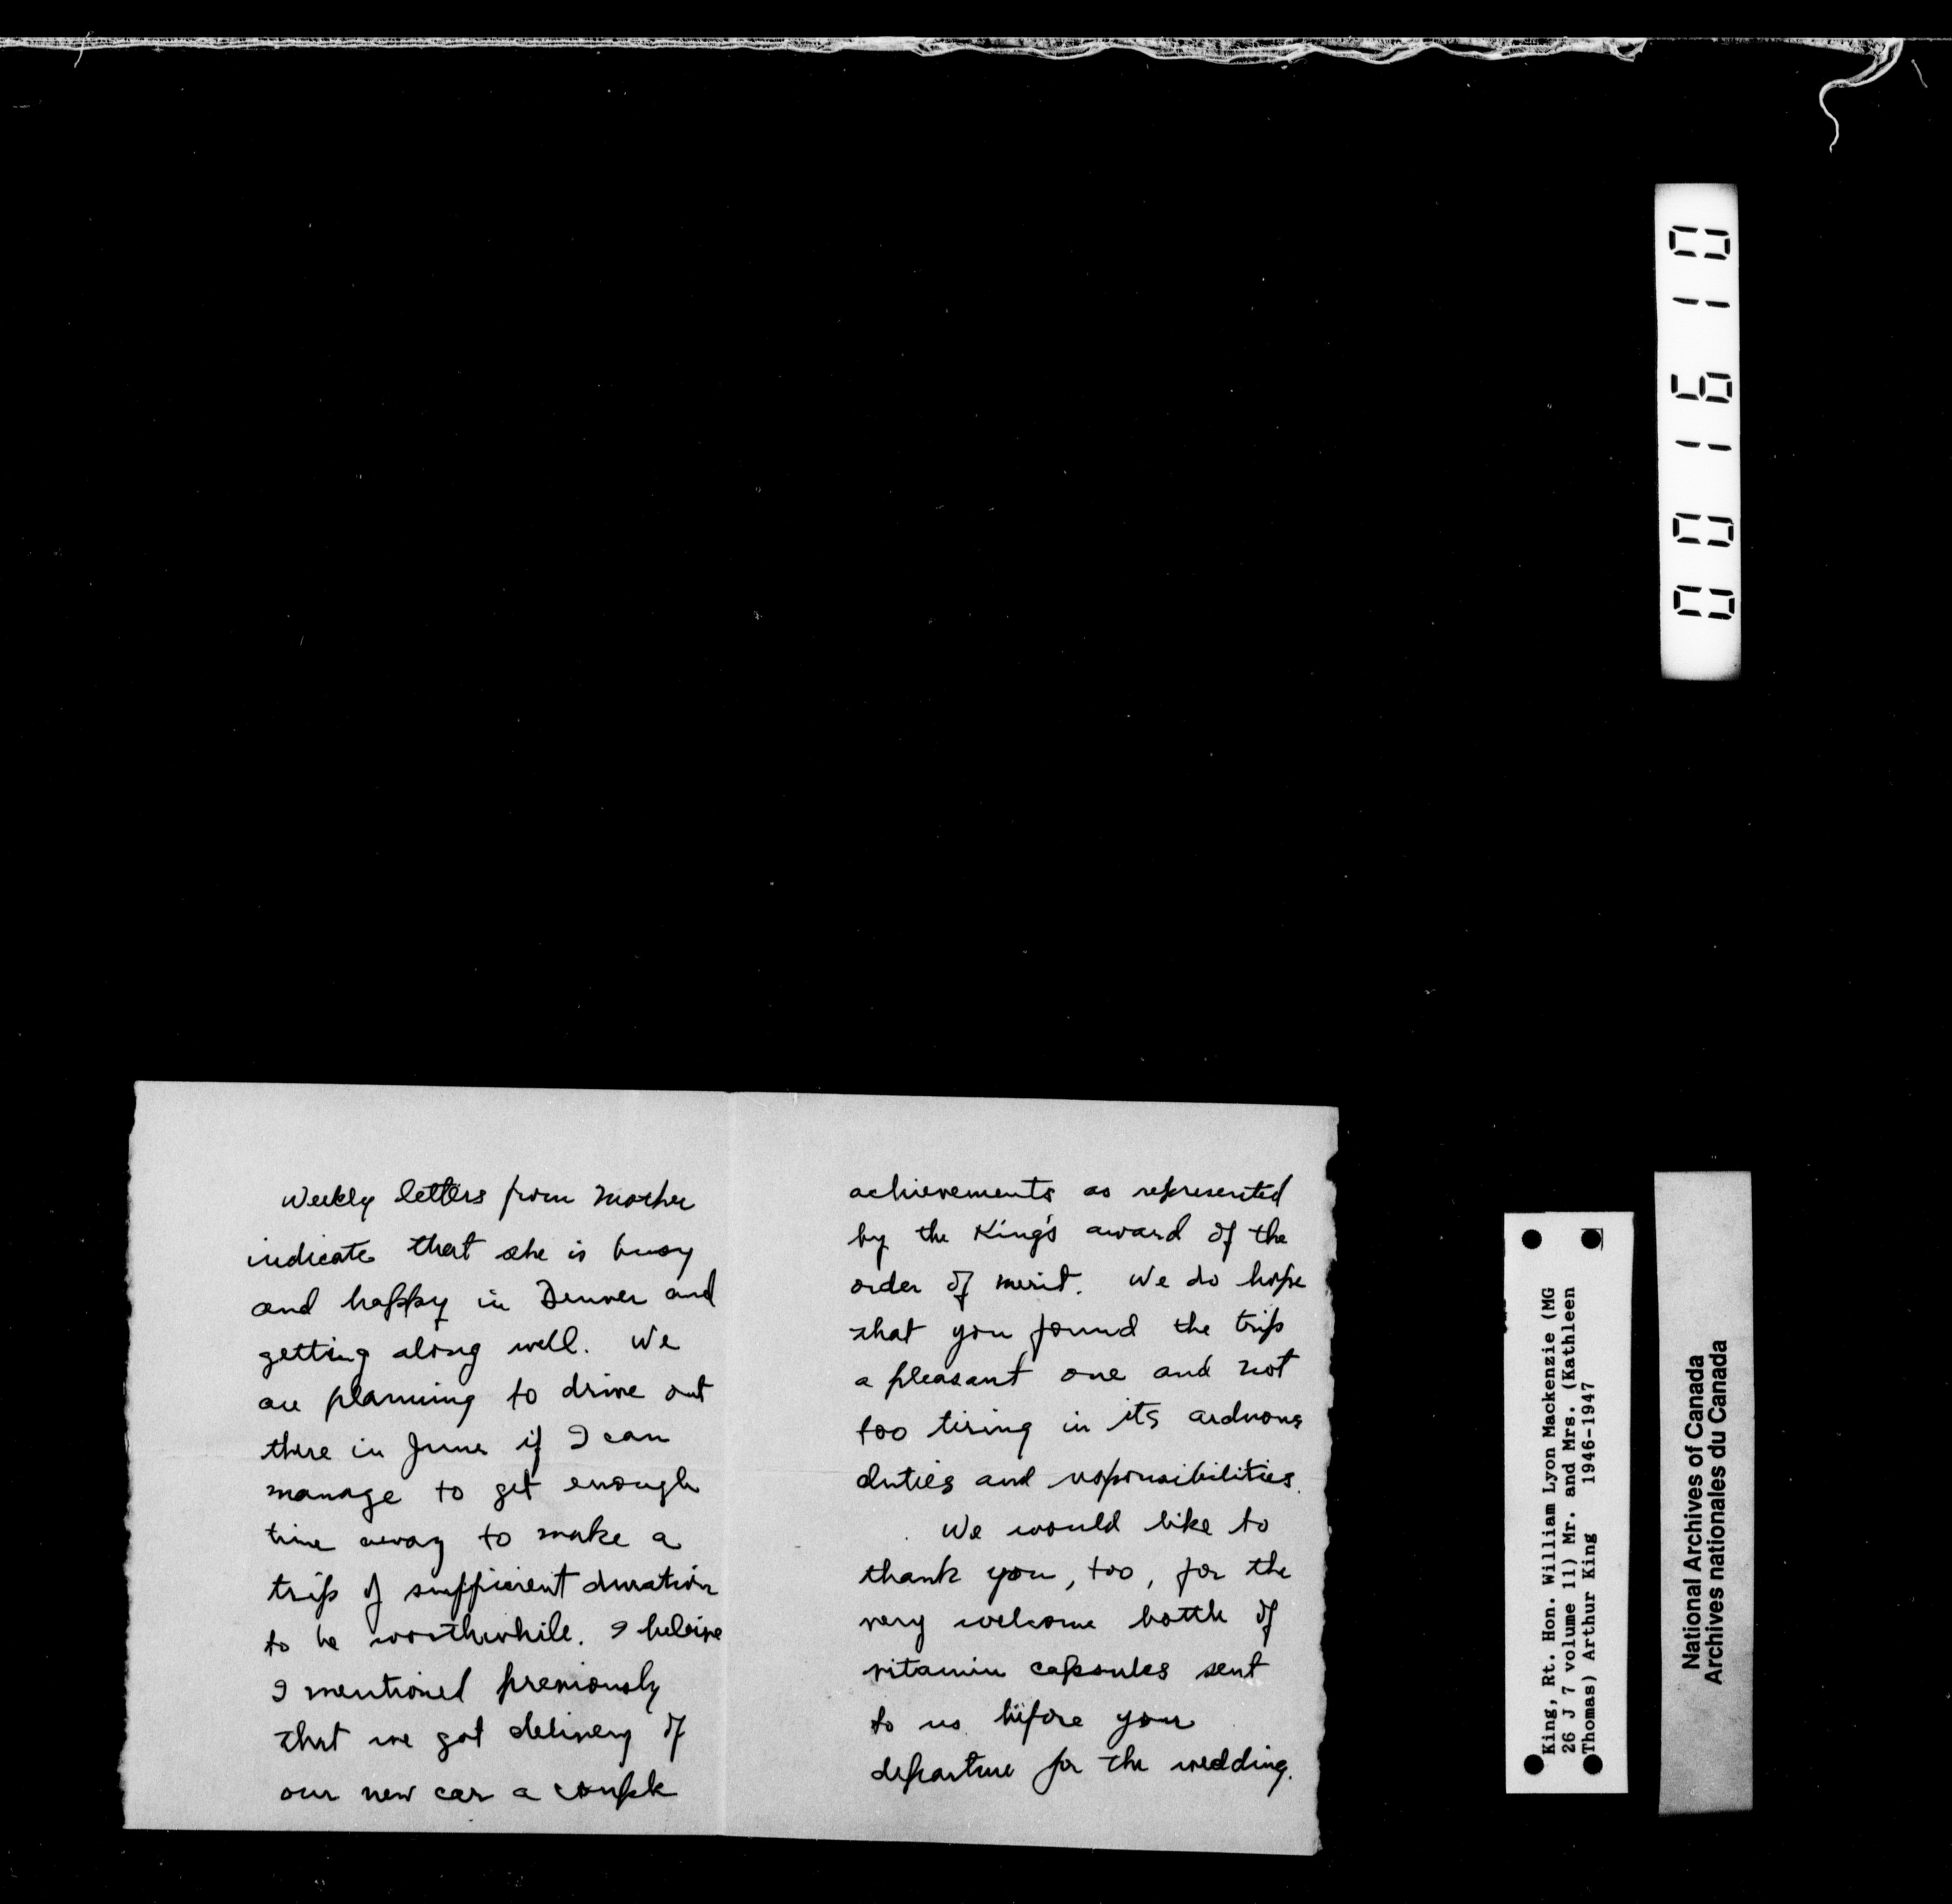 Weekly letters from Mother
indicate that she is busy
and happy in Denver and
getting along well. We
are planning to drive out
there in June if I can
manage to get enough
time away to make a
trip of sufficient duration
to be worthwhile. I beleive
I mentioned previously
that we got delivery of
our new car a couple
achievements as represented
by the King's award of the
order of merit. We do hope
that you found the trip
a pleasant one and not
too tiring in its arduous
duties and responsibilities.
We would like to
thank you, too, for the
very welcome bottle of
vitamin capsules sent
to us before your
departure for the wedding.
001610
King, Rt. Hon. William Lyon Mackenzie (MG
26 J 7 volume 11) Mr. and Mrs. (Kathleen
Thomas) Arthur King 1946-1947
National Archives of Canada
Archives nationales du Canada